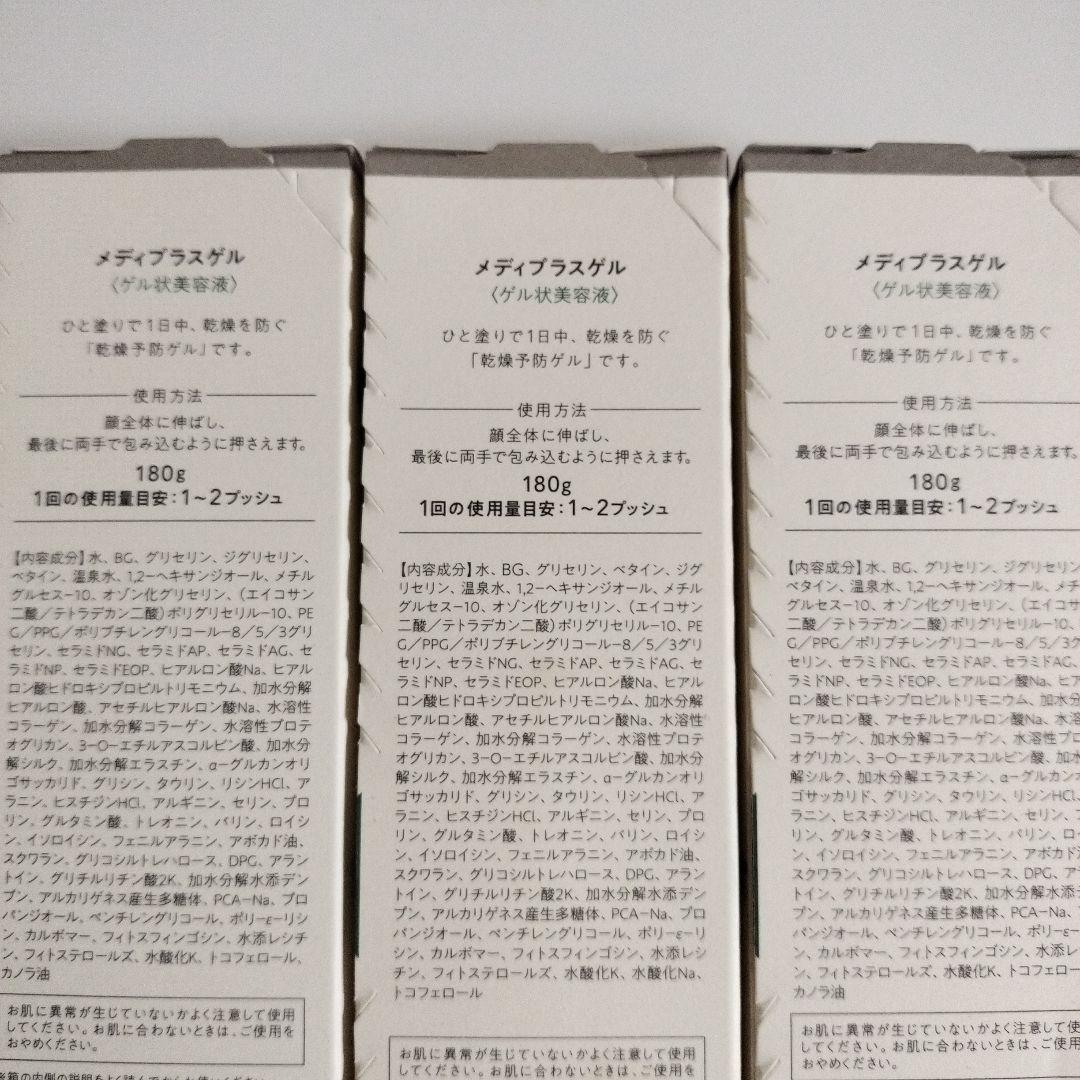 メディプラスゲル
〈ゲル状美容液〉
ひと塗りで1日中、乾燥を防ぐ
「乾燥予防ゲル」です。
使用方法
顔全体に伸ばし、
最後に両手で包み込むように押さえます。
180g
1回の使用量目安:1～2プッシュ
【内容成分】水、BG、グリセリン、ジグリセリン、
ベタイン、温泉水、1,2-ヘキサンジオール、メチル
グルセス-10、オゾン化グリセリン、(エイコサン
二酸/テトラデカン二酸)ポリグリセリル-10、PE
G/PPG/ポリブチレングリコール-8/5/3グリ
セリン、セラミドNG、セラミドAP、セラミドAG、セ
ラミドNP、セラミドEOP、ヒアルロン酸Na、ヒアル
ロン酸ヒドロキシプロピルトリモニウム、加水分解
ヒアルロン酸、アセチルヒアルロン酸Na、水溶性
コラーゲン、加水分解コラーゲン、水溶性プロテ
オグリカン、3-O-エチルアスコルビン酸、加水分
解シルク、加水分解エラスチン、α-グルカンオリ
ゴサッカリド、グリシン、タウリン、リシンHCl、ア
ラニン、ヒスチジンHCl、アルギニン、セリン、プロ
リン、グルタミン酸、トレオニン、バリン、ロイシ
ン、イソロイシン、フェニルアラニン、アボカド油、
スクワラン、グリコシルトレハロース、DPG、アラン
トイン、グリチルリチン酸2K、加水分解水添デン
プン、アルカリゲネス産生多糖体、PCA-Na、プロ
パンジオール、ペンチレングリコール、ポリ-ε-リシ
ン、カルボマー、フィトスフィンゴシン、水添レシチ
ン、フィトステロールズ、水酸化K、トコフェロール、
カノラ油
お肌に異常が生じていないかよく注意して使用
してください。お肌に合わないときは、ご使用を
おやめください。
メディプラスゲル
〈ゲル状美容液〉
ひと塗りで1日中、乾燥を防ぐ
「乾燥予防ゲル」です。
使用方法
顔全体に伸ばし、
最後に両手で包み込むように押さえます。
180g
1回の使用量目安:1～2プッシュ
【内容成分】水、BG、グリセリン、ベタイン、ジグ
リセリン、温泉水、1,2-ヘキサンジオール、メチル
グルセス-10、オゾン化グリセリン、(エイコサン
二酸/テトラデカン二酸)ポリグリセリル-10、PE
G/PPG/ポリブチレングリコール-8/5/3グリ
セリン、セラミドNG、セラミドAP、セラミドAG、セ
ラミドNP、セラミドEOP、ヒアルロン酸Na、ヒアル
ロン酸ヒドロキシプロピルトリモニウム、加水分解
ヒアルロン酸、アセチルヒアルロン酸Na、水溶性
コラーゲン、加水分解コラーゲン、水溶性プロテ
オグリカン、3-O-エチルアスコルビン酸、加水分
解シルク、加水分解エラスチン、α-グルカンオリ
ゴサッカリド、グリシン、タウリン、リシンHCl、ア
ラニン、ヒスチジンHCl、アルギニン、セリン、プロ
リン、グルタミン酸、トレオニン、バリン、ロイシ
ン、イソロイシン、フェニルアラニン、アボカド油、
スクワラン、グリコシルトレハロース、DPG、アラン
トイン、グリチルリチン酸2K、加水分解水添デン
プン、アルカリゲネス産生多糖体、PCA-Na、プロ
パンジオール、ペンチレングリコール、ポリ-ε-リ
シン、カルボマー、フィトスフィンゴシン、水添レシ
チン、フィトステロールズ、水酸化K、水酸化Na、
トコフェロール
お肌に異常が生じていないかよく注意して使用
してください。お肌に合わないときは、ご使用を
メディプラスゲル
〈ゲル状美容液〉
ひと塗りで1日中、乾燥を防ぐ
「乾燥予防ゲル」です。
使用方法
顔全体に伸ばし、
最後に両手で包み込むように押さえます。
180g
1回の使用量目安:1～2プッシュ
【内容成分】水、BG、グリセリン、ジグリセリン
ベタイン、温泉水、1,2-ヘキサンジオール、メチ
グルセス-10、オゾン化グリセリン、(エイコサ
二酸/テトラデカン二酸)ポリグリセリル-10、
G/PPG/ポリブチレングリコール-8/5/3グ
セリン、セラミドNG、セラミドAP、セラミドAG、
ラミドNP、セラミドEOP、ヒアルロン酸Na、ヒア
ロン酸ヒドロキシプロピルトリモニウム、加水分
ヒアルロン酸、アセチルヒアルロン酸Na、水溶
コラーゲン、加水分解コラーゲン、水溶性プロ
オグリカン、3-O-エチルアスコルビン酸、加水
解シルク、加水分解エラスチン、α-グルカンオ
ゴサッカリド、グリシン、タウリン、リシンHCl、
ラニン、ヒスチジンHCl、アルギニン、セリン、
リン、グルタミン酸、トレオニン、バリン、ロイ
ン、イソロイシン、フェニルアラニン、アボカド
スクワラン、グリコシルトレハロース、DPG、ア
トイン、グリチルリチン酸2K、加水分解水添デ
プン、アルカリゲネス産生多糖体、PCA-Na、
パンジオール、ペンチレングリコール、ポリ-ε-
ン、カルボマー、フィトスフィンゴシン、水添レシ
ン、フィトステロールズ、水酸化K、トコフェロー
カノラ油
お肌に異常が生じていないかよく注意して使
してください。お肌に合わないときは、ご使用
おやめください。